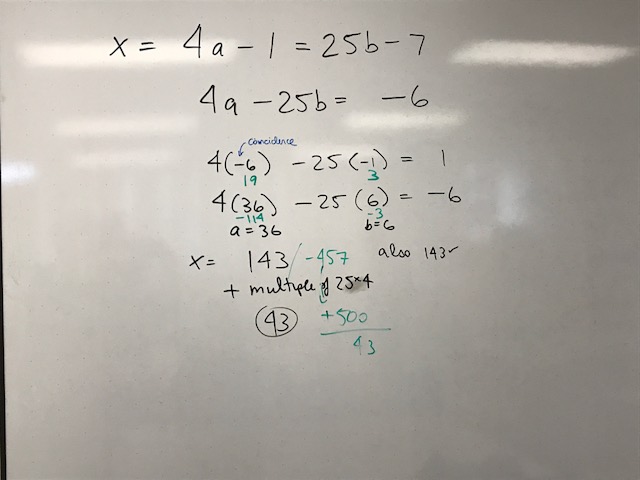 x = 4a - 1 = 25b - 7
4a - 25b = -6
coincidence
4(-6) - 25(-1) = 1
19 3
4(36) - 25(6) = -6
-114 -3
a = 36 b = 6
x = 143 / -457 also 143✓
+ multiple of 25*4
43 +500
43